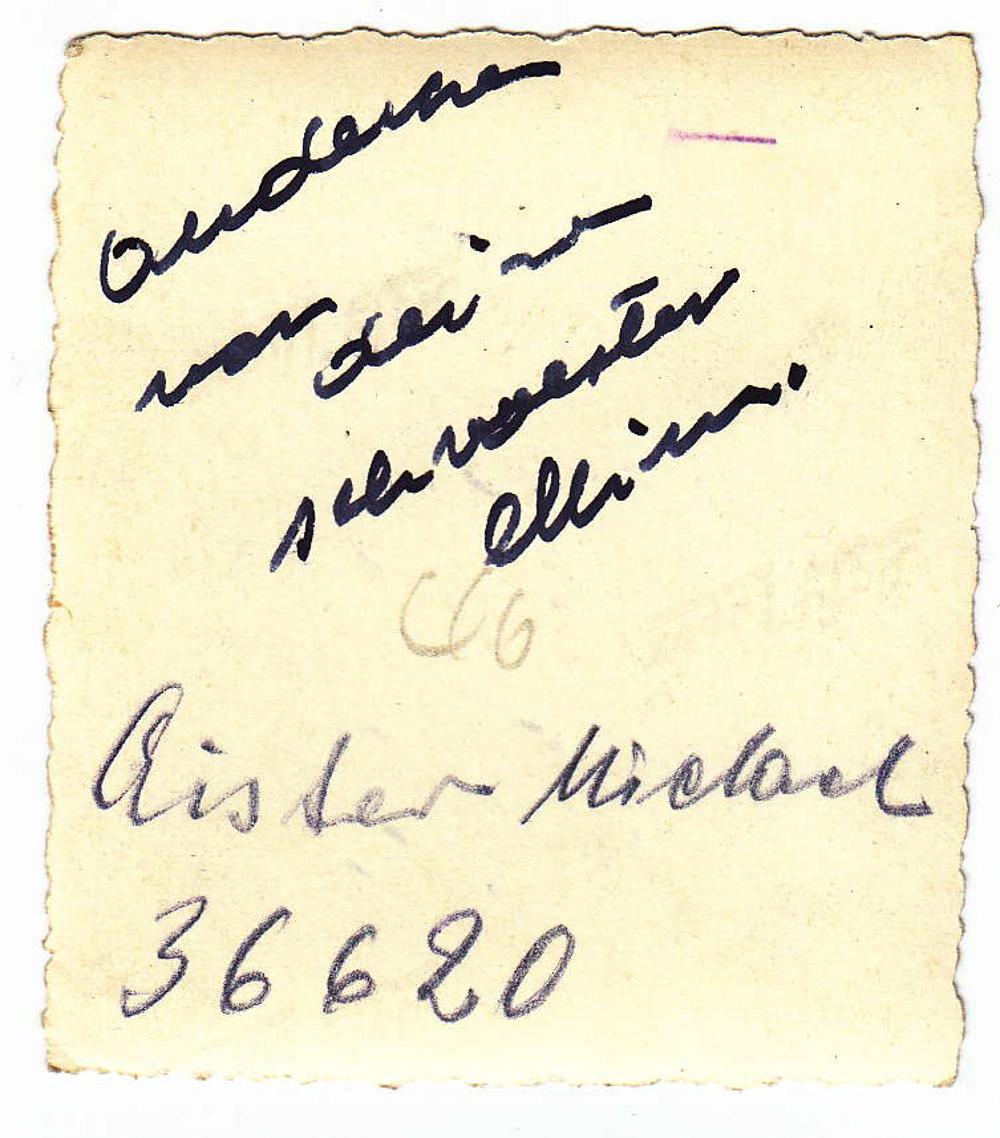 andenke
von deiner
schwester
ellinn.
66
Aister Michael
36620